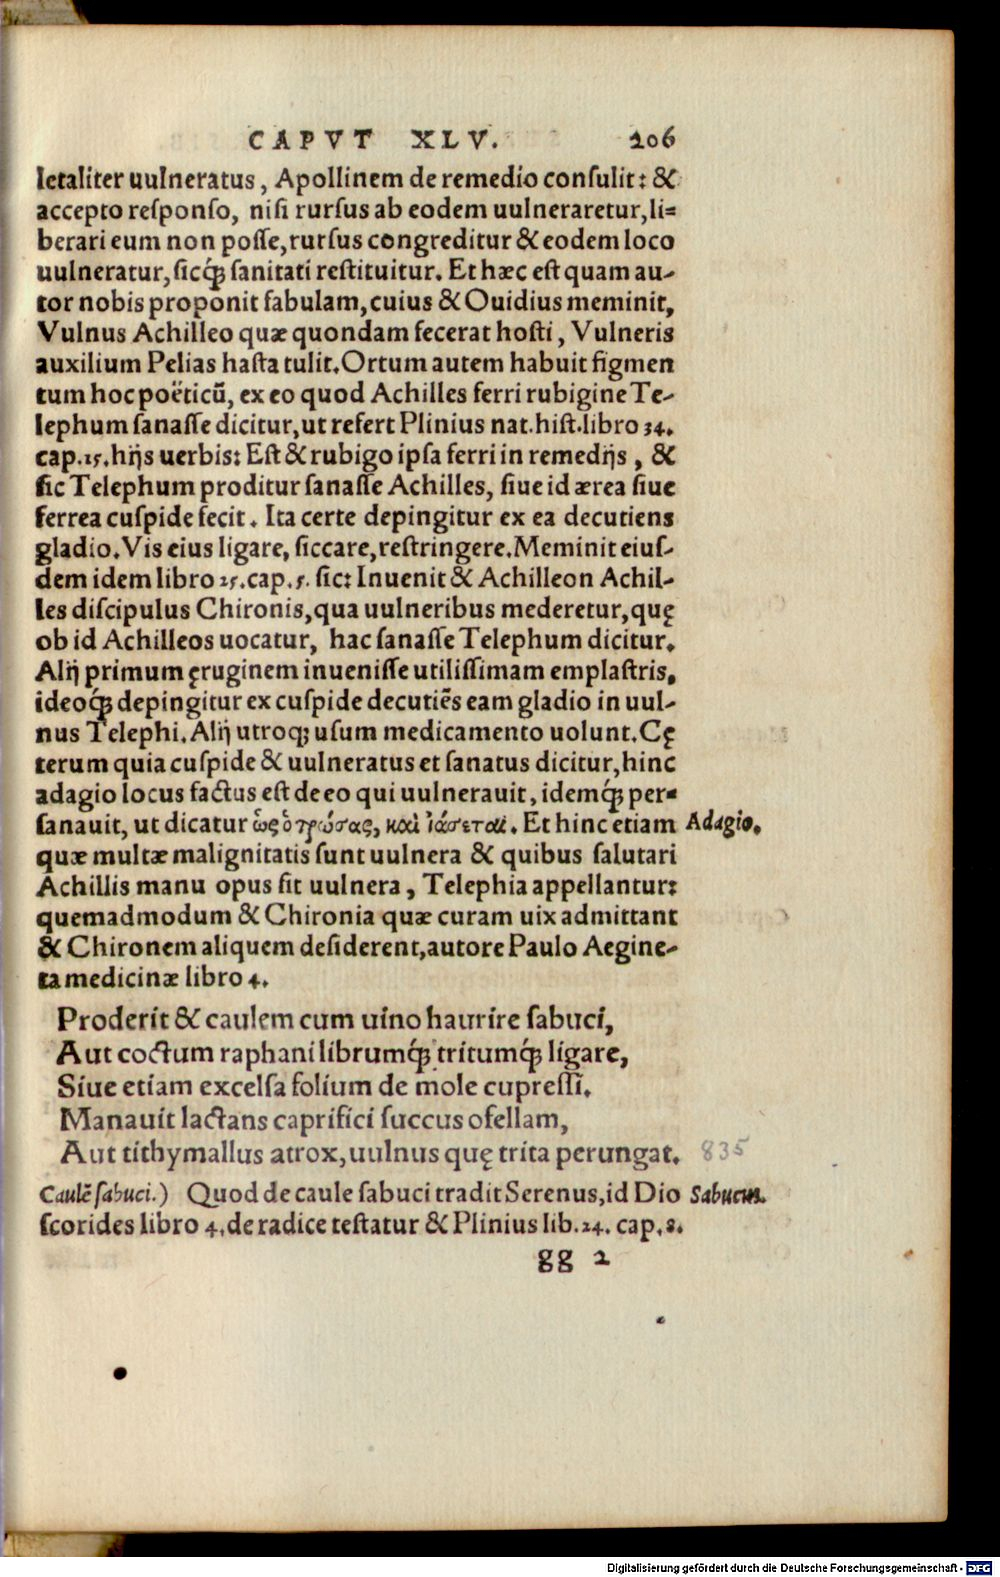 CAPVT XLV. 206
letaliter uulneratus, Apollinem de remedio consulit: &
accepto responso, nisi rursus ab eodem uulneraretur, li=
berari eum non posse, rursus congreditur & eodem loco
uulneratur, sicq́ꝫ sanitati restituitur. Et hæc est quam au-
tor nobis proponit fabulam, cuius & Ouidius meminit,
Vulnus Achilleo quæ quondam fecerat hosti, Vulneris
auxilium Pelias hasta tulit. Ortum autem habuit figmen
tum hoc poëticũ, ex eo quod Achilles ferri rubigine Te-
lephum sanasse dicitur, ut refert Plinius nat. hist. libro 34.
cap. 15. hijs uerbis: Est & rubigo ipsa ferri in remedijs, &
sic Telephum proditur sanasse Achilles, siue id ærea siue
ferrea cuspide fecit. Ita certe depingitur ex ea decutiens
gladio. Vis eius ligare, siccare, restringere. Meminit eius-
dem idem libro 25. cap. 5. sic: Inuenit & Achilleon Achil-
les discipulus Chironis, qua uulneribus mederetur, quę
ob id Achilleos uocatur, hac sanasse Telephum dicitur.
Alij primum ęruginem inuenisse utilissimam emplastris,
ideoq́ꝫ depingitur ex cuspide decutiẽs eam gladio in uul-
nus Telephi. Alij utroqꝫ usum medicamento uolunt. Cę
terum quia cuspide & uulneratus et sanatus dicitur, hinc
adagio locus factus est de eo qui uulnerauit, idemq́ꝫ per=
sanauit, ut dicatur ὥς ὁ τρώσας, καὶ ἰάσεται. Et hinc etiam Adagio.
quæ multæ malignitatis sunt uulnera & quibus salutari
Achillis manu opus sit uulnera, Telephia appellantur:
quemadmodum & Chironia quæ curam uix admittant
& Chironem aliquem desiderent, autore Paulo Aegine-
ta medicinæ libro 4.
Proderit & caulem cum uino haurire sabuci,
Aut coctum raphani librumq́ꝫ tritumq́ꝫ ligare,
Siue etiam excelsa folium de mole cupressi.
Manauit lactans caprifici succus ofellam,
Aut tithymallus atrox, uulnus quę trita perungat. 835
Caulẽ sabuci.) Quod de caule sabuci tradit Serenus, id Dio Sabucus.
scorides libro 4. de radice testatur & Plinius lib. 24. cap. 8.
gg 2
Digitalisierung gefördert durch die Deutsche Forschungsgemeinschaft - DFG